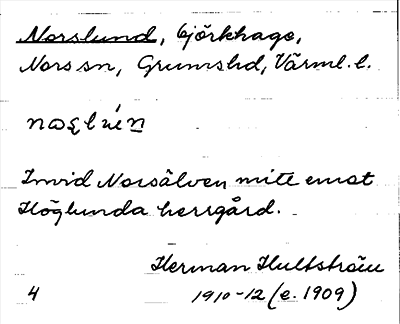 Norslund, Björkhage,
Nors sn, Grums hd, Värml. l.
Invid Norsälven mitt emot
Höglunda herrgård.
Herman Hultström
1910-12 (e. 1909)
4